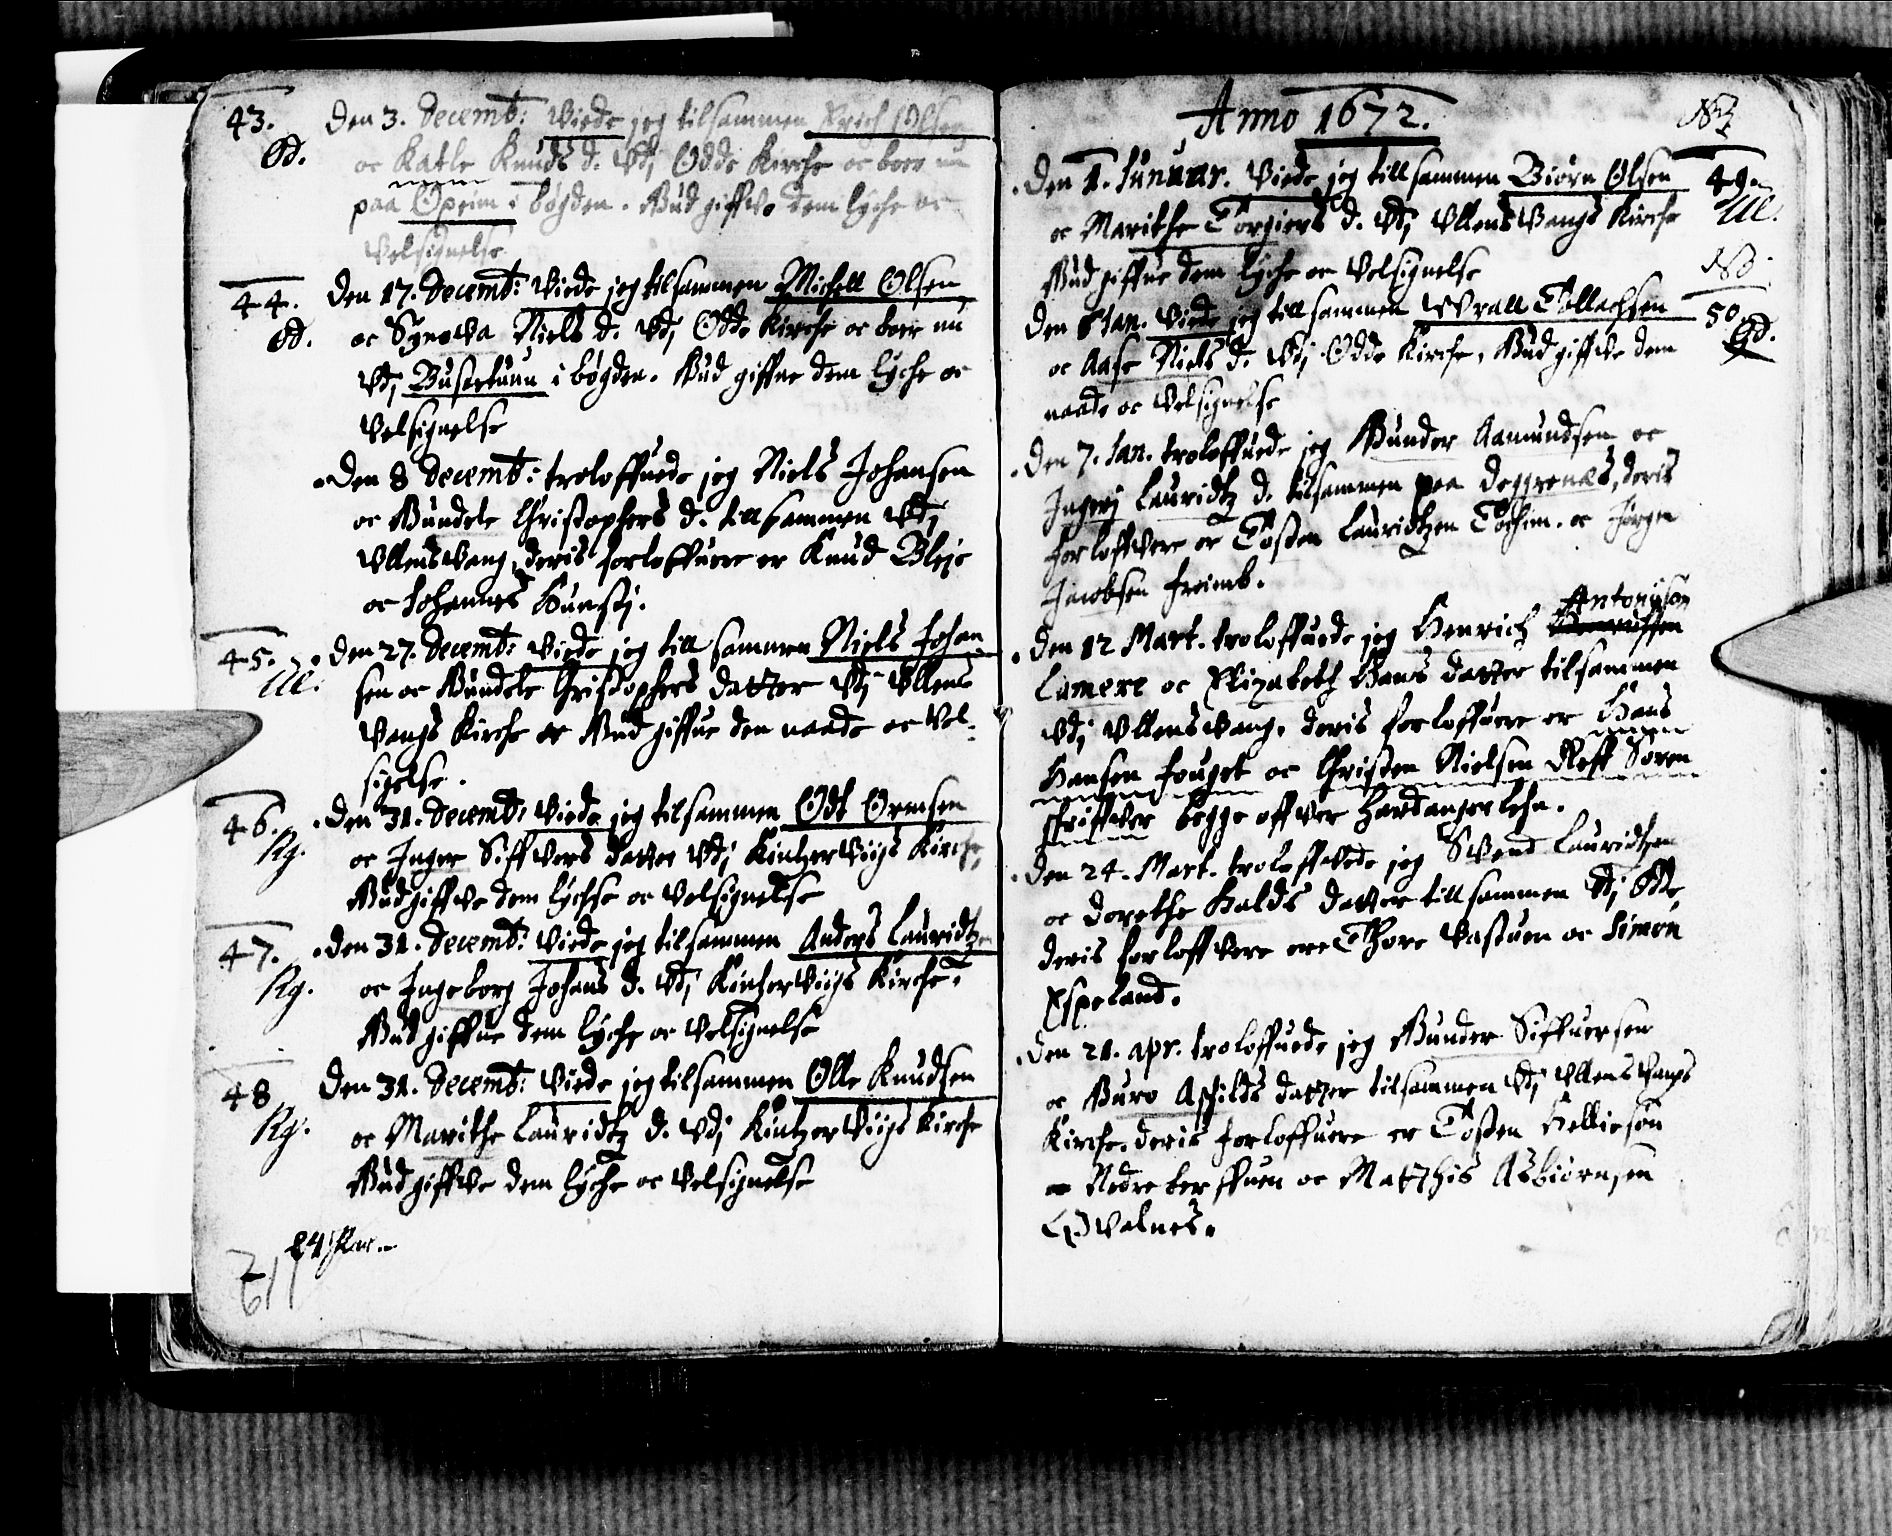 43. Den 3. Decemb: Viede jeg tilsammen Erich Olsen
Od. oc Katle Knuds d. vdj Odde Kirche oc boer nu
paa Opeim i bøgden. Gud giffve dem lyche oc
Velsignelse
44. Den 17. Decemb: Viede jeg tilsammen Michell Olsen
Od. oc Synøva Niels d. vdj Odde Kirche oc boer nu
vdj Busetuun i bøgden. Gud giffue dem lyche oc
Velsignelse
Den 8 Decemb: troloffuede jeg Niels Johansen
oc Gundele Christophers d. till sammen vdj
Ullensvang, deris forloffuere er Knud Bleje
oc Johannes
45. Den 27. Decemb: Viede jeg till sammen Niels Johan
Ul. sen oc Gundele Christophers datter vdj Ullens
vangs Kirche oc Gud giffue den naade oc Vel-
sigelse.
46. Den 31. Decemb: Viede jeg tilsammen Odt Ormsen
Kg. oc Inger Siffvers datter vdj Kintzerviigs Kirche,
Gud giffve dem lychse oc velsignelse
47. Den 31. Decemb: Viede jeg tilsammen Anders Lauridtz
Kg. oc Ingeborg Johans d. vdj Kintzerviigs Kirche.
Gud giffue dem lyche oc velsignelse
48 Den 31. Decemb: Viede jeg tilsammen Olle Knudsen
Kg. oc Marithe Lauridtz d. vdj Kintzerviigs Kirche
Gud giffve dem lyche oc velsignelse
24 Par.
Anno 1672.
Den 1. Januar. Viede jeg till sammen Biørn Olsen 49.
oc Marithe Torgiers d. vdj Ullensvangs Kirche Ul.
Gud giffue dem lyche oc Velsignelse
Den 6 Jan. Viede jeg till sammen Wrall Tollachsen 50.
oc Aase Niels d. vdj Odde Kirche, Gud giffve dem Od.
naade oc Velsignelse
Den 7. Jan. troloffuede jeg Gunder Aamundsen oc
Ingerj Lauridtz d. tilsammen paa Deggrenæs, deris
forloffvere er Tosten Lauridtzen Tochim. oc Jørgen
Jacobsen Freimb.
Den 12 Mart. troloffuede jeg Henrich Antonyson
Lamere oc Elizabeth Hans datter tilsammen
vdj Ullensvang. deris forloffuere er Hans
Hansen fouget oc Christen Nielsen Reff Soren
schriffver begge offver Hardangerlehn.
Den 24. Mart. troloffvede jeg Svend Lauridtzen
oc Dorethe Halds datter till sammen vdj Odde,
deris forloffvere ere Thore Vastuen oc Simen
Espeland.
Den 21. apr. troloffuede jeg Gunder Siffuersen
oc Guro Aschilds datter tilsammen vdj Ullensvangs
Kirche. deris forloffuere er Tosten Hellieson
Nedre berffuen oc Matthis Asbiørnsen
Qvalnes.